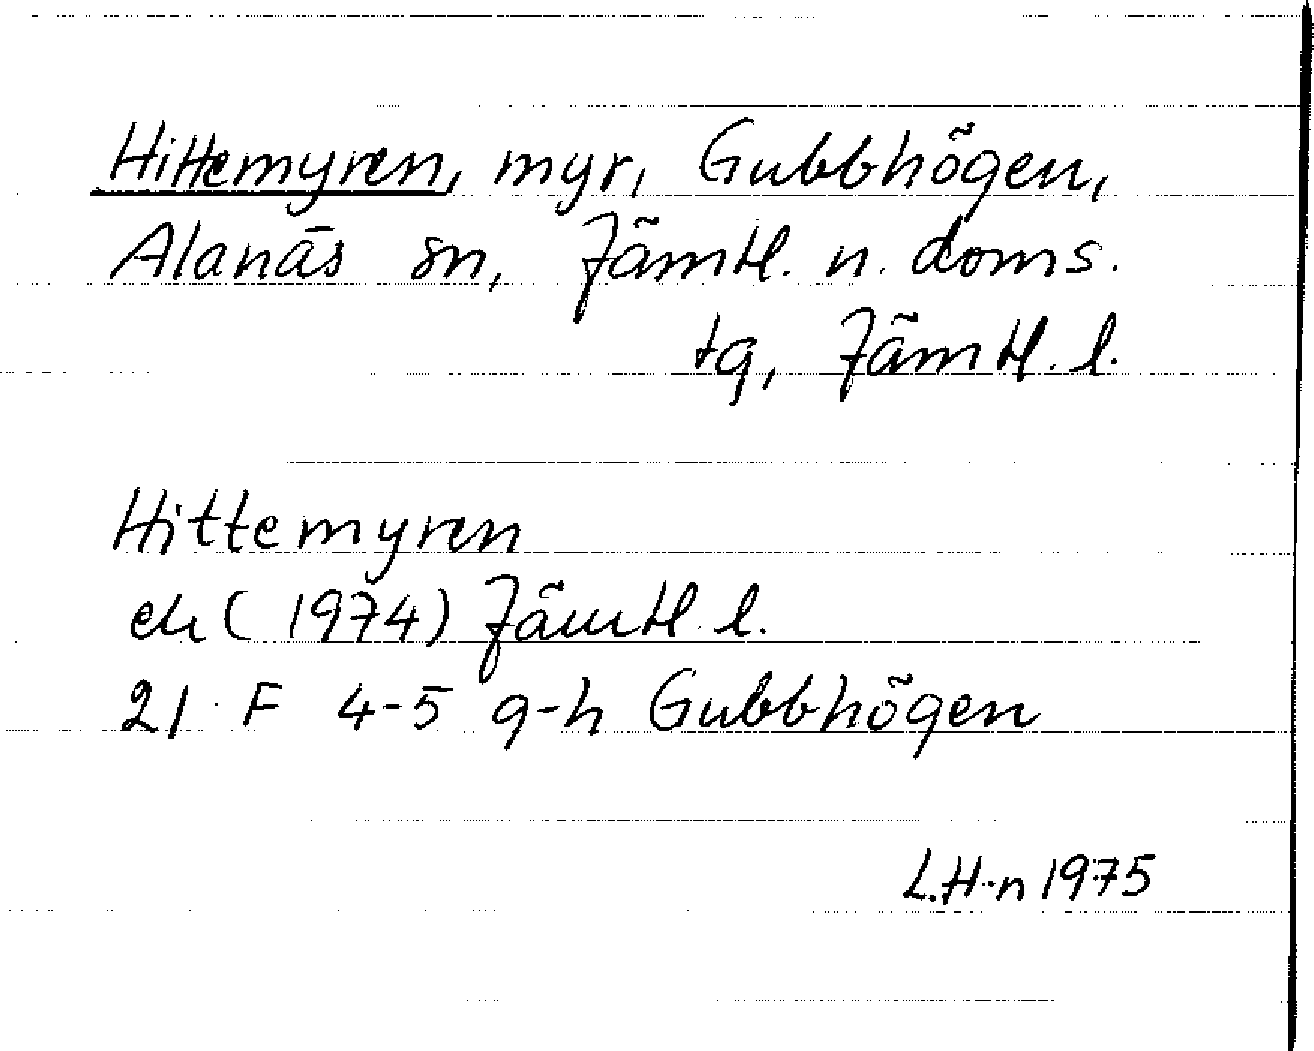 Hittemyren, myr, Gubbhögen,
Alanäs sn, Jämtl. n. doms.
tg, Jämtl. l.
Hittemyren
ek (1974) Jämtl. l.
21 F 4-5 g-h Gubbhögen
L.H-n 1975